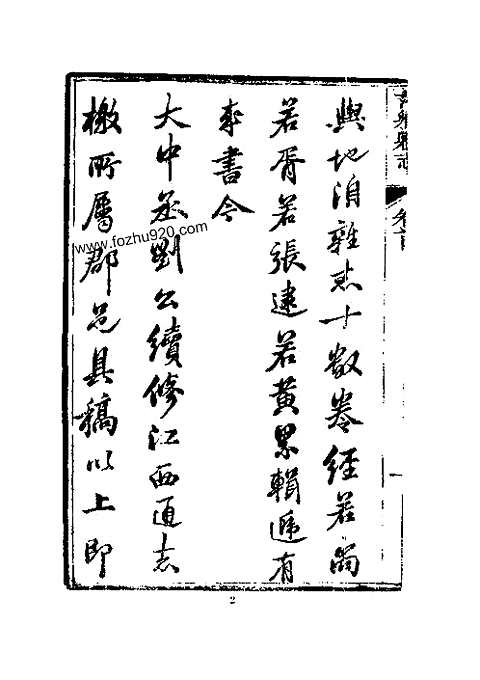 輿地洎雜志十數卷經若
若胥若張逮若黃累輯遞有
書今
大中丞劉公續修江西通志
檄所屬郡邑具稿以上即
www.fozhu920.com
2